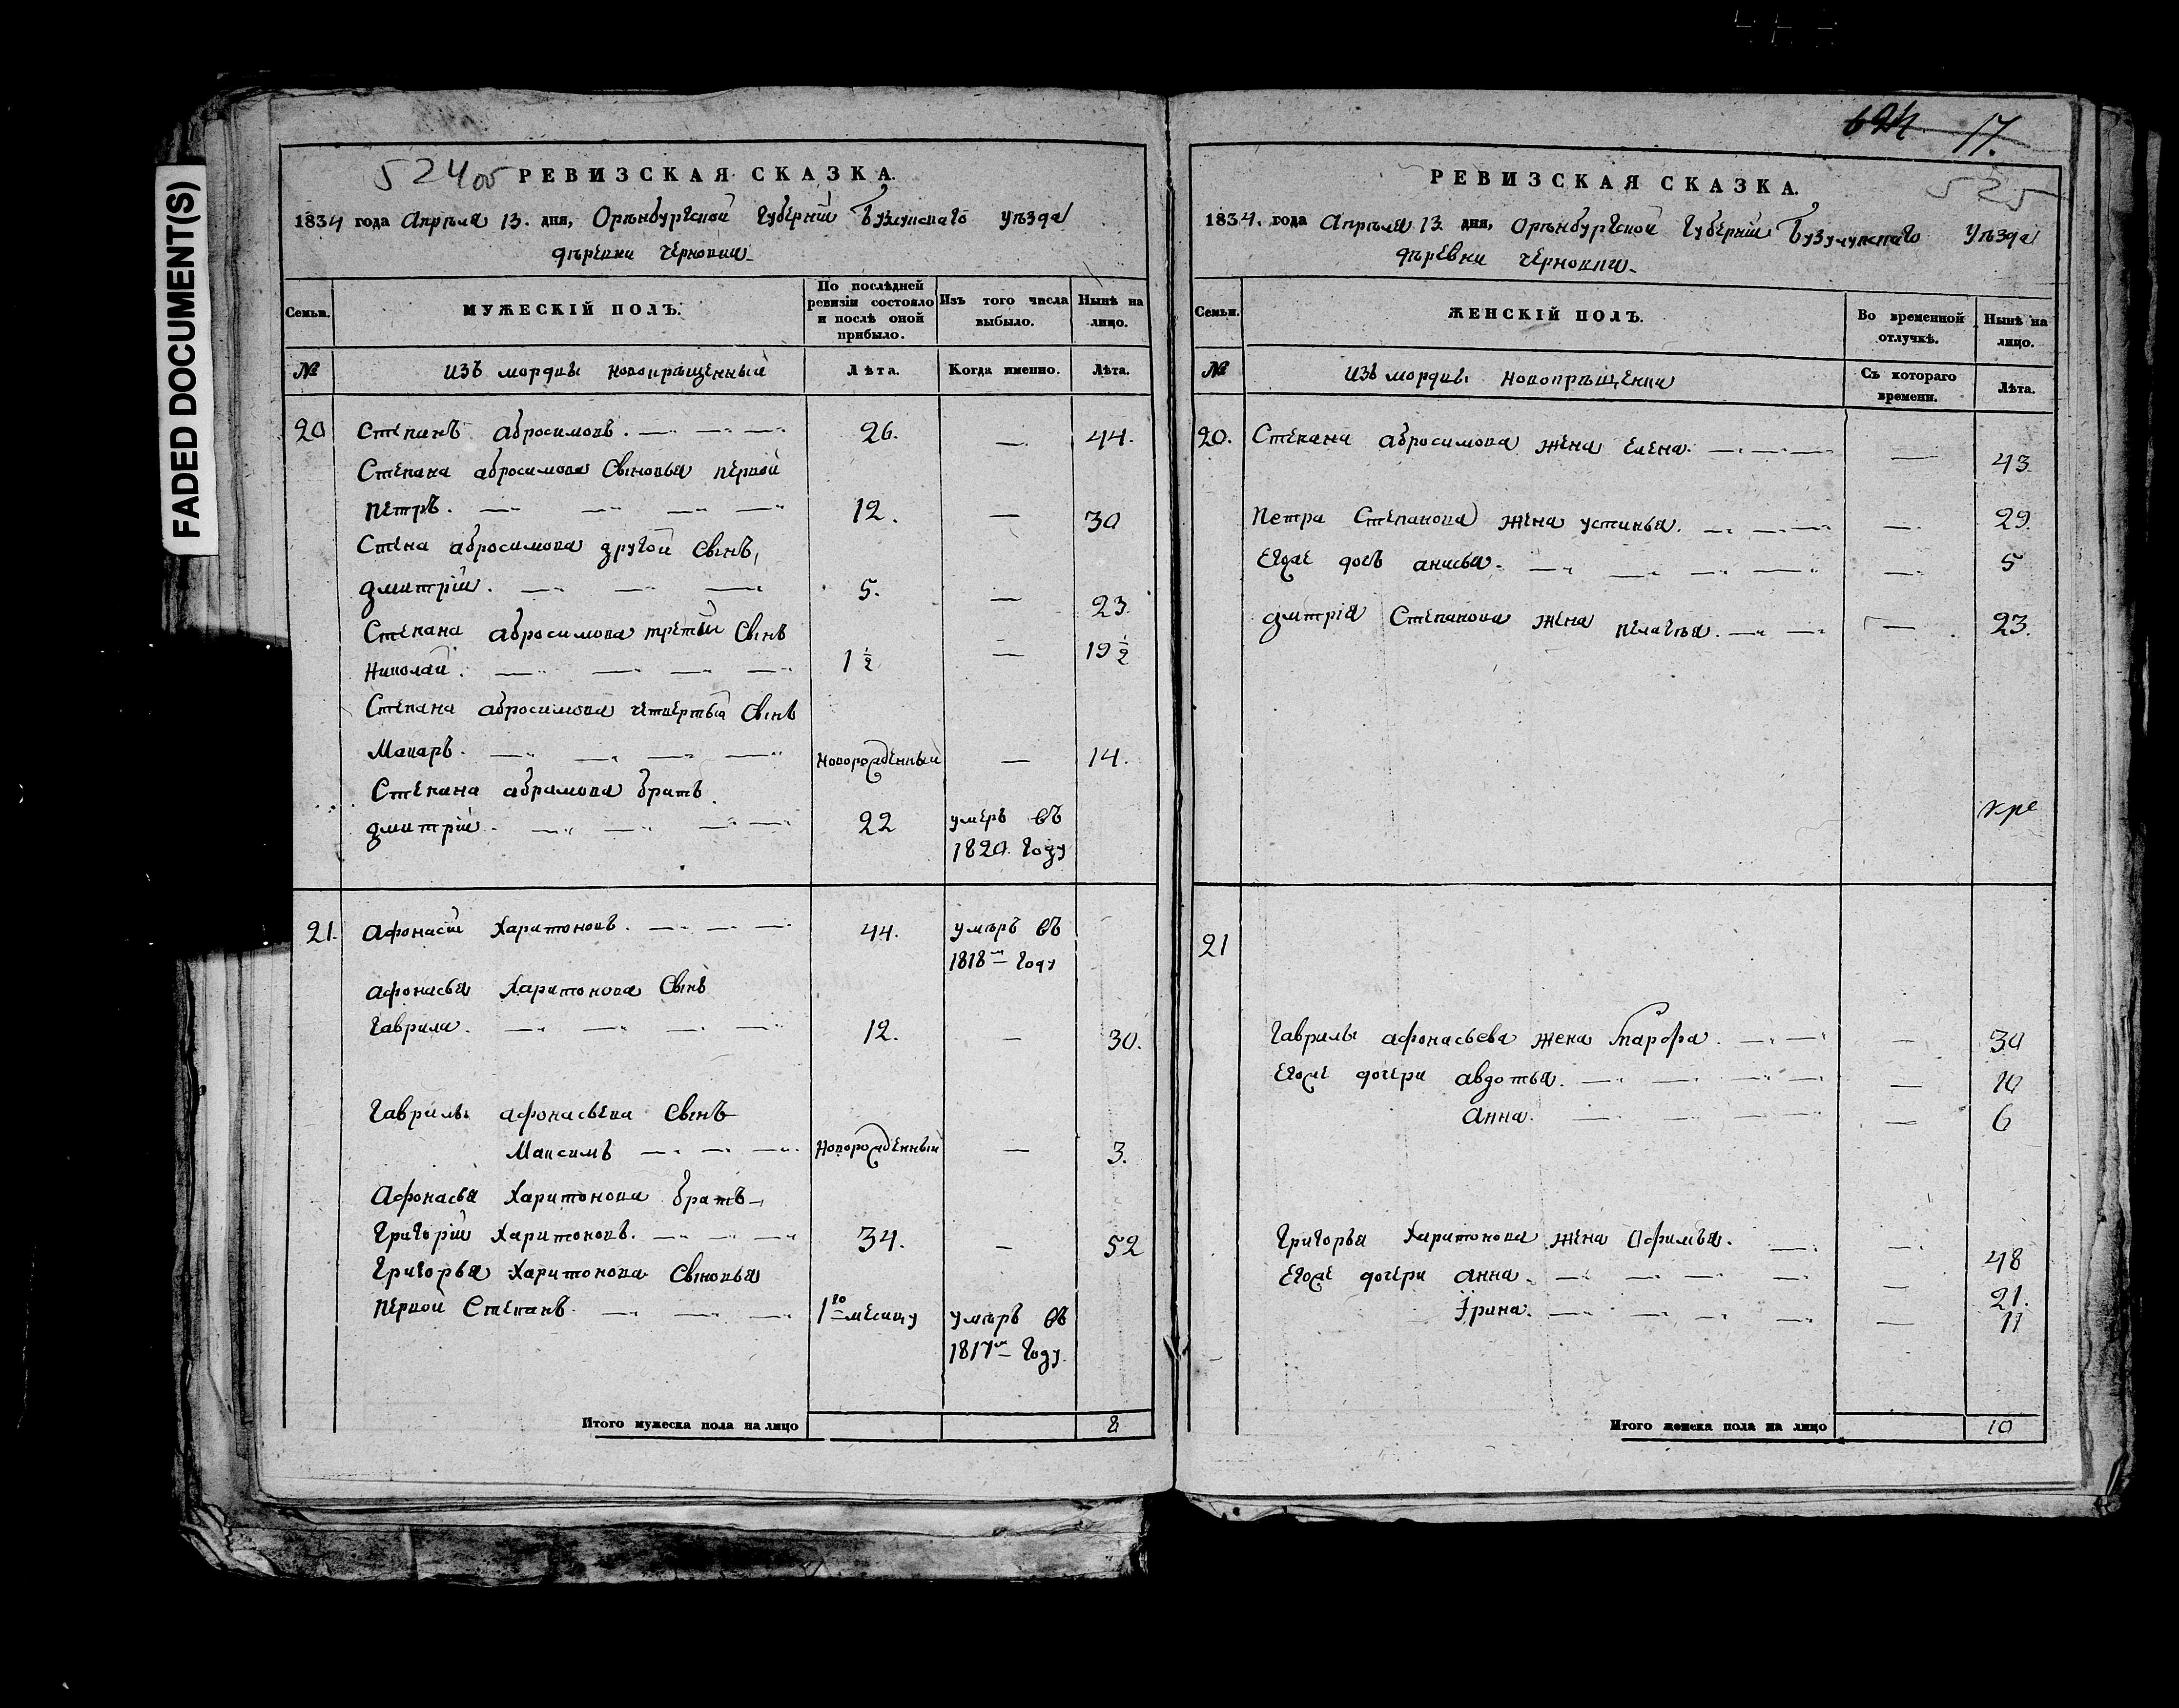 FADED DOCUMENT(S)
524 об
РЕВИЗСКАЯ СКАЗКА.
1834 года Апрѣля 13. дня, Орѣнбургской губерніи Бузулускаго уѣзда
дѣревни Черновки.
Семьи.
МУЖЕСКІЙ ПОЛЪ.
По послѣдней ревизіи состояло и послѣ оной прибыло.
Изъ того числа выбыло.
Нынѣ на лицо.
№
изъ мордвы новокрѣщенный
Лѣта.
Когда именно.
Лѣта.
20 Степанъ Абросимовъ. 26. — 44.
Степана абросимова Сыновья первой
Петръ. 12. — 30
Стена абросимова другой Сынъ,
дмитрій. 5. — 23.
Степана абросимова третьй Сынъ
Николай. 1 1/2 — 19 1/2
Степана абросимова четвертый Сынъ
Макаръ. новорожденный — 14.
Степана абрамова братъ.
дмитрій. 22 умеръ въ
1820. году
21. Афонасій Харитоновъ. 44. умѣръ въ
1818м году
Афонасья Харитонова Сынъ
Гаврила. 12. — 30.
Гаврилы афонасьева Сынъ
Максимъ новорожденный — 3.
Афонасья Харитонова братъ
Григорій Харитоновъ. 34. — 52
Григорья Харитонова Сыновья
первой Степанъ. 1го месяцу умѣръ въ
1817м году.
Итого мужеска пола на лицо 8
624 17.
525
РЕВИЗСКАЯ СКАЗКА.
1834. года Апрѣля 13. дня, Орѣнбургской губерніи Бузулускаго Уѣзда
дѣревни Черновки.
Семьи.
ЖЕНСКІЙ ПОЛЪ.
Во временной отлучкѣ.
Нынѣ на лицо.
№
изъ мордвы новокрѣщенки
Съ котораго времени.
Лѣта.
20. Степана абросимова жена Елена. — 43.
Петра Степанова жена устинья. — 29.
Егоже дочь анисья. — 5
дмтрія Степанова жена пелагѣя. — 23.
21
Гаврилы афонасьева жена Марфа. — 30
Егоже дочери авдотья. — 10
Анна. — 6
Григорья Харитонова жена Офимья. — 48
Егоже дочери анна. — 21.
Ірина. — 11
Итого женска пола на лицо 10